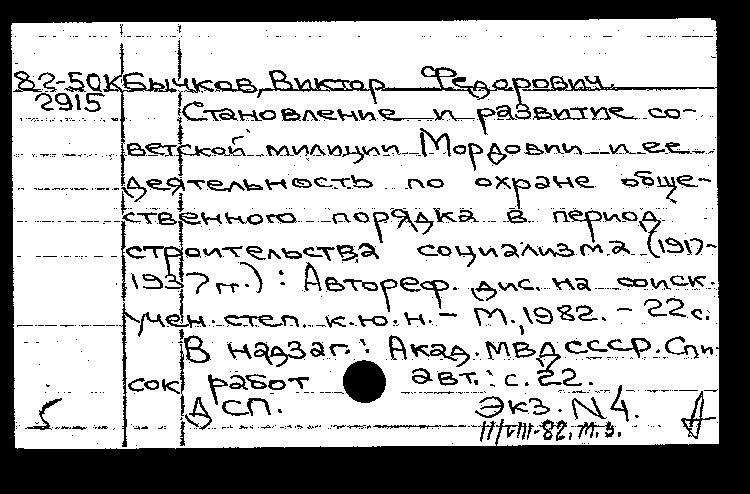 82-50К Бычков, Виктор Федорович.
2915 Становление и развитие со-
ветской милиции Мордовии и ее
деятельность по охране обще-
ственного порядка в период
строительства социализма (1917-
1937 гг.) : Автореф. дис. на соиск.
учен. степ. к.ю.н. - М., 1982. - 22 с.
В надзаг.: Акад. МВД СССР. Спи-
сок работ авт.: с. 22.
5 ДСП. Экз. N4. А
11/VIII-82. т. з.